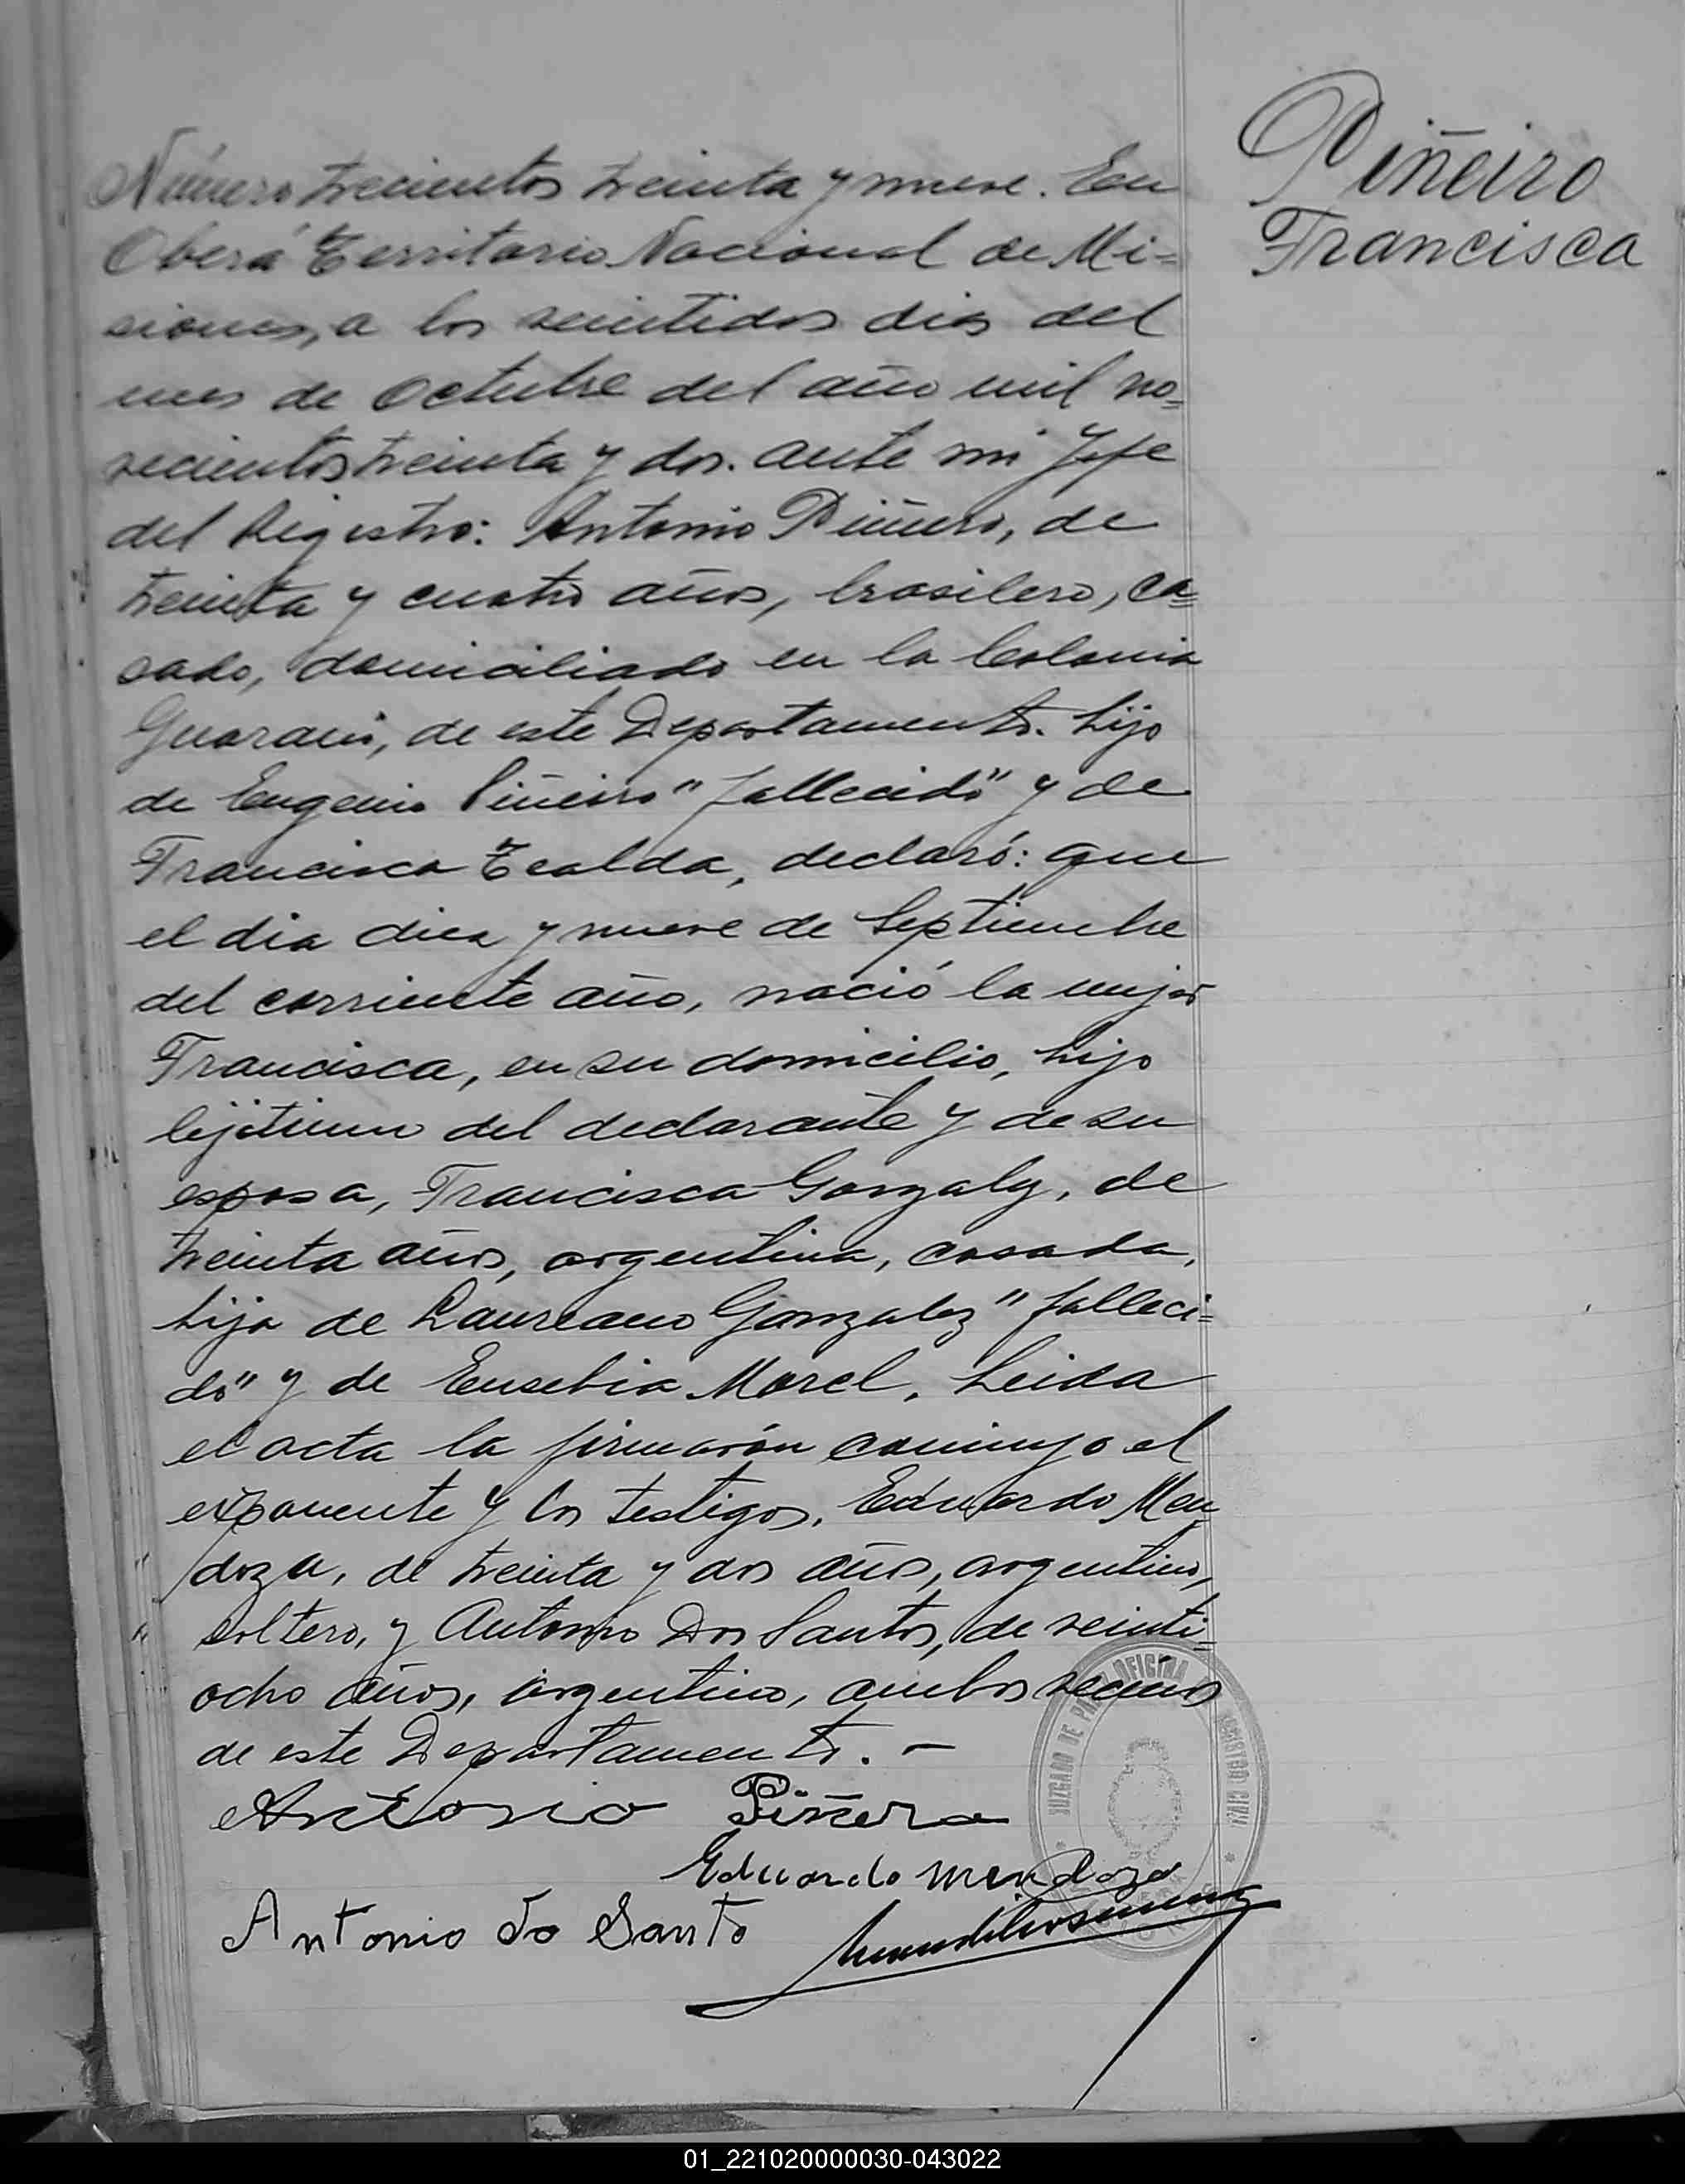 Piñeiro
Francisca
Número trecientos treinta y nueve. En
Oberá Territorio Nacional de Mi=
siones, a los veintidos dias del
mes de Octubre del año mil no=
vecientos treinta y dos. ante mi Jefe
del Registro: Antonio Piñero, de
treinta y cuatro años, brasilero, ca=
sado, domiciliado en la Colonia
Guarani, de este Departamento. hijo
de Eugenio Piñeiro "fallecido" y de
Francisca Tealda, declaró: que
el dia diez y nueve de Septiembre
del corriente año, nació la mujer
Francisca, en su domicilio, hijo
lejitimo del declarante y de su
esposa, Francisca Gonzalez, de
treinta años, argentina, casada,
hija de Laureano Gonzalez "falleci=
do" y de Eusebia Morel. Leida
el acta la firmarón conmigo el
exponente y los testigos, Eduardo Men
doza, de treinta y dos años, argentino,
soltero, y Antonio Dos Santos, de veinti=
ocho años, argentino, ambos vecinos
de este Departamento. —
Antonio Piñero
Eduardo Mendoza
Antonio Do Santo
JUZGADO DE PAZ OFICINA REGISTRO CIVIL
01_221020000030-043022